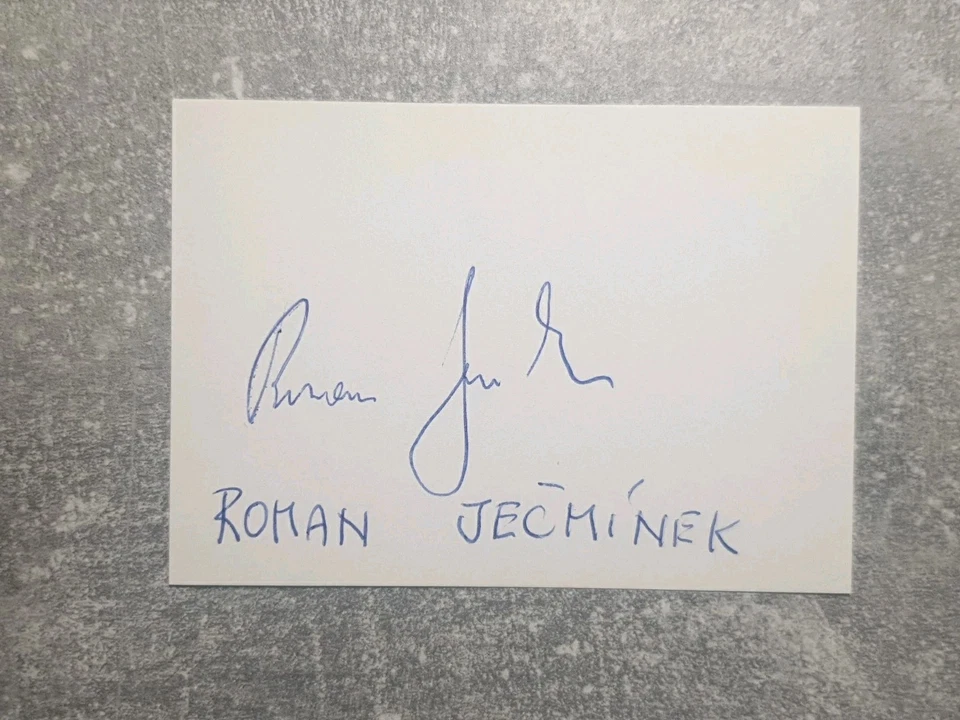 Roman
ROMAN JEČMÍNEK